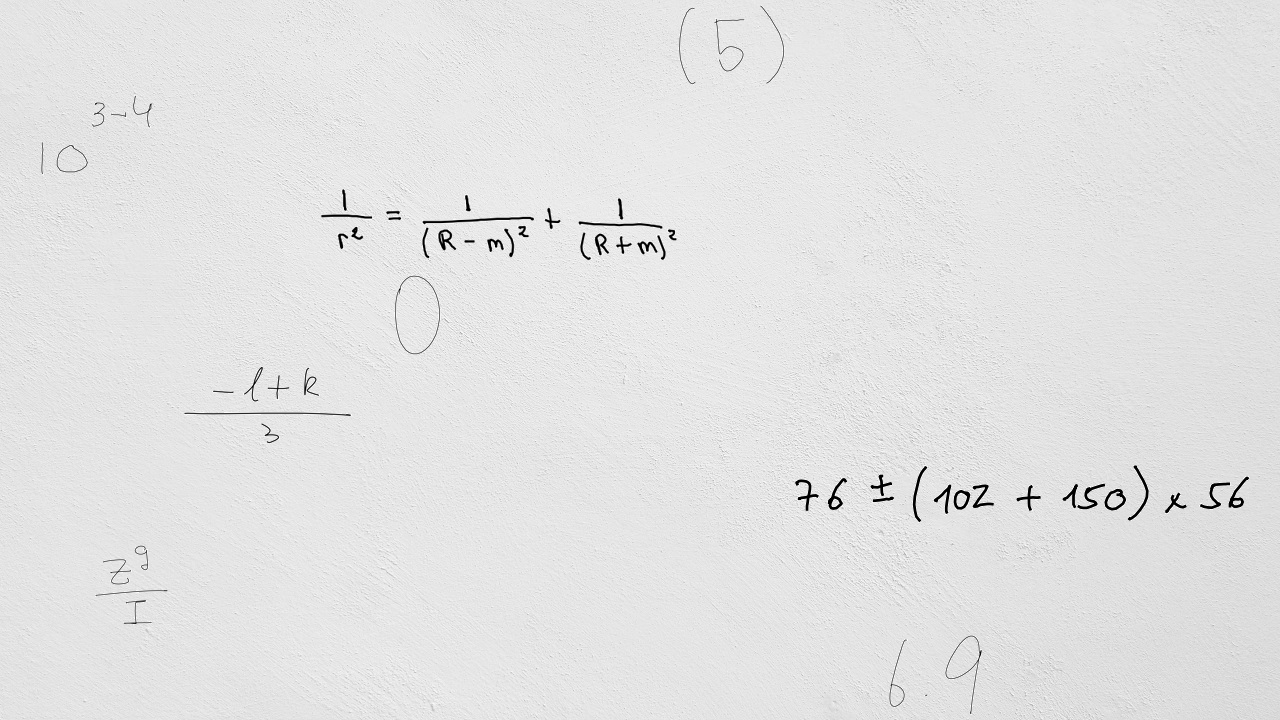 (5)
10^{3-4}
\frac{1}{r^2} = \frac{1}{(R-m)^2} + \frac{1}{(R+m)^2}
0
\frac{-l+k}{3}
76 ± (102 + 150) × 56
\frac{z^g}{I}
6.9